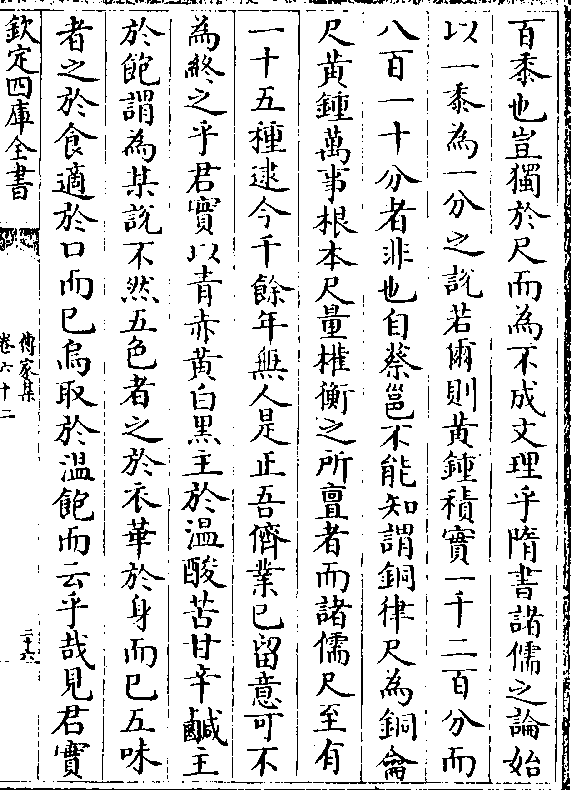 百黍也豈獨於尺而為不成文理乎隋書諸儒之論始
以一黍為一分之說若爾則黃鍾積實一千二百分而
八百一十分者非也自蔡邕不能知謂銅律尺為銅龠
尺黃鍾萬事根本尺量權衡之所亶者而諸儒尺至有
一十五種逮今千餘年無人是正吾儕業已留意可不
為終之乎君實以青赤黃白黑主於溫酸苦甘辛鹹主
於飽謂為某說不然五色者之於衣華於身而已五味
者之於食適於口而已烏取於溫飽而云乎哉見君實
欽定四庫全書
傳家集
卷六十二
二十六